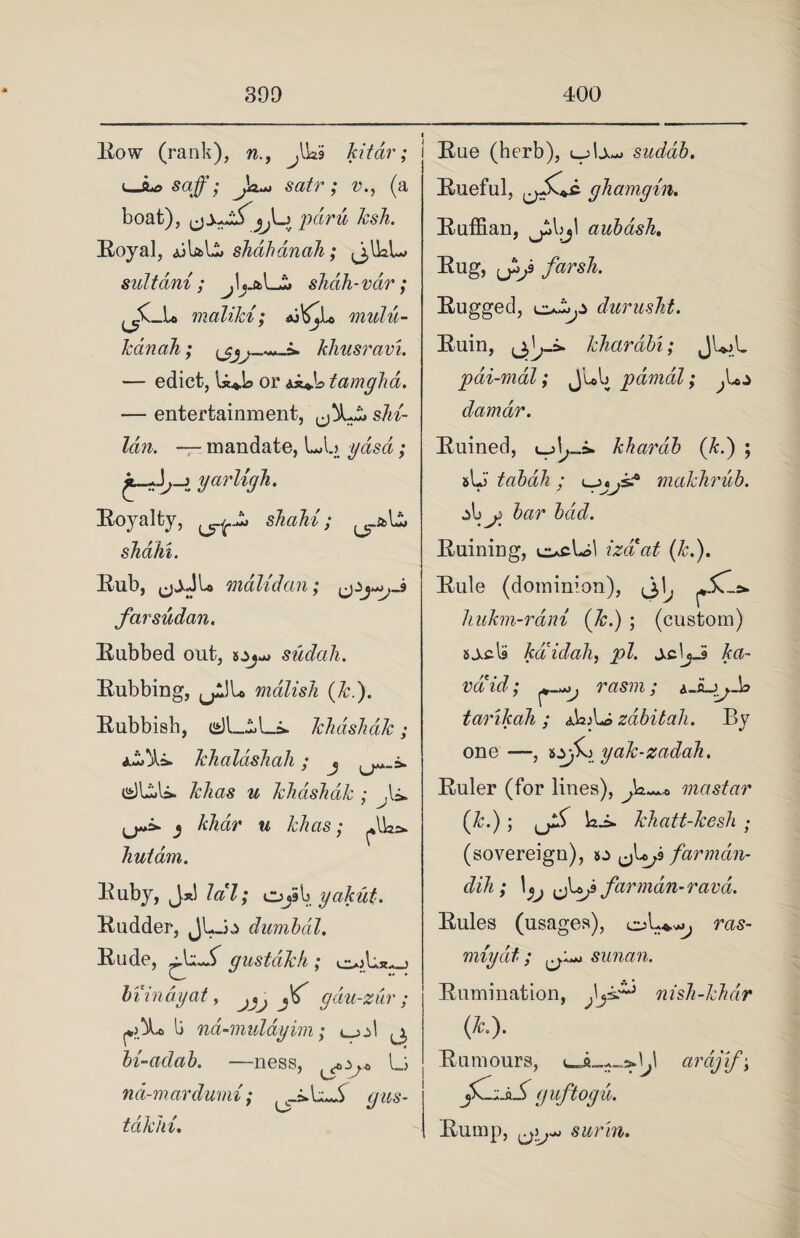 399
Row (rank), n., قطار kitár;
صف saff; سطر satr; v., (a
boat), پارو کشیدن párú ksh.
Royal, شاهانه sháhánah; سلطانی
sultání; شاهوار sháh-vár;
ملکی malikí; ملوکانه mulú-
kánah; خسروی khusraví.
— edict, طمغا or طمغه tamghá.
— entertainment, شیلان shí-
lán. — mandate, یاسا yásá;
یرلیغ yarlígh.
Royalty, شهی shahí; شاهی
sháhí.
Rub, مالیدن málídan; فرسودن
farsúdan.
Rubbed out, سوده súdah.
Rubbing, مالش málish (k.).
Rubbish, خاشاک kháshák;
خلاشه khaláshah; خس و
خاشاک khas u kháshák; خار
و خس khár u khas; حطام
hutám.
Ruby, لعل la'l; یاقوت yakút.
Rudder, دنبال dumbál.
Rude, گستاخ gustákh; بیعنایت
bí'ináyat, گاو زور gáu-zúr;
نا ملایم ná-muláyim; بی ادب
bí-adab. —ness, نا مردمی
ná-mardumí; گستاخی gus-
tákhí.
400
Rue (herb), سداب sudáb.
Rueful, غمگین ghamgín.
Ruffian, اوباش aubásh.
Rug, فرش farsh.
Rugged, درشت durusht.
Ruin, خرابی kharábí; پایمال
pái-mál; پامال pámál; دمار
damár.
Ruined, خراب kharáb (k.);
تباه tabáh; مخروب makhrúb.
بر باد bar bád.
Ruining, اضاعت izá'at (k.).
Rule (dominion), حکم رانی
hukm-rání (k.); (custom)
قاعده ká'idah, pl. قواعد ka-
vá'id; رسم rasm; طریقه
taríkah; ضابطه zábitah. By
one —, یکزده yak-zadah.
Ruler (for lines), مسطر mastar
(k.); خط کش khatt-kesh;
(sovereign), فرمان ده farmán-
dih; فرمان روا farmán-ravá.
Rules (usages), رسمیات ras-
míyát; سنن sunan.
Rumination, نشخوار nish-khár
(k.).
Rumours, اراجیف arájíf;
گفتگو guftogú.
Rump, سرین surín.